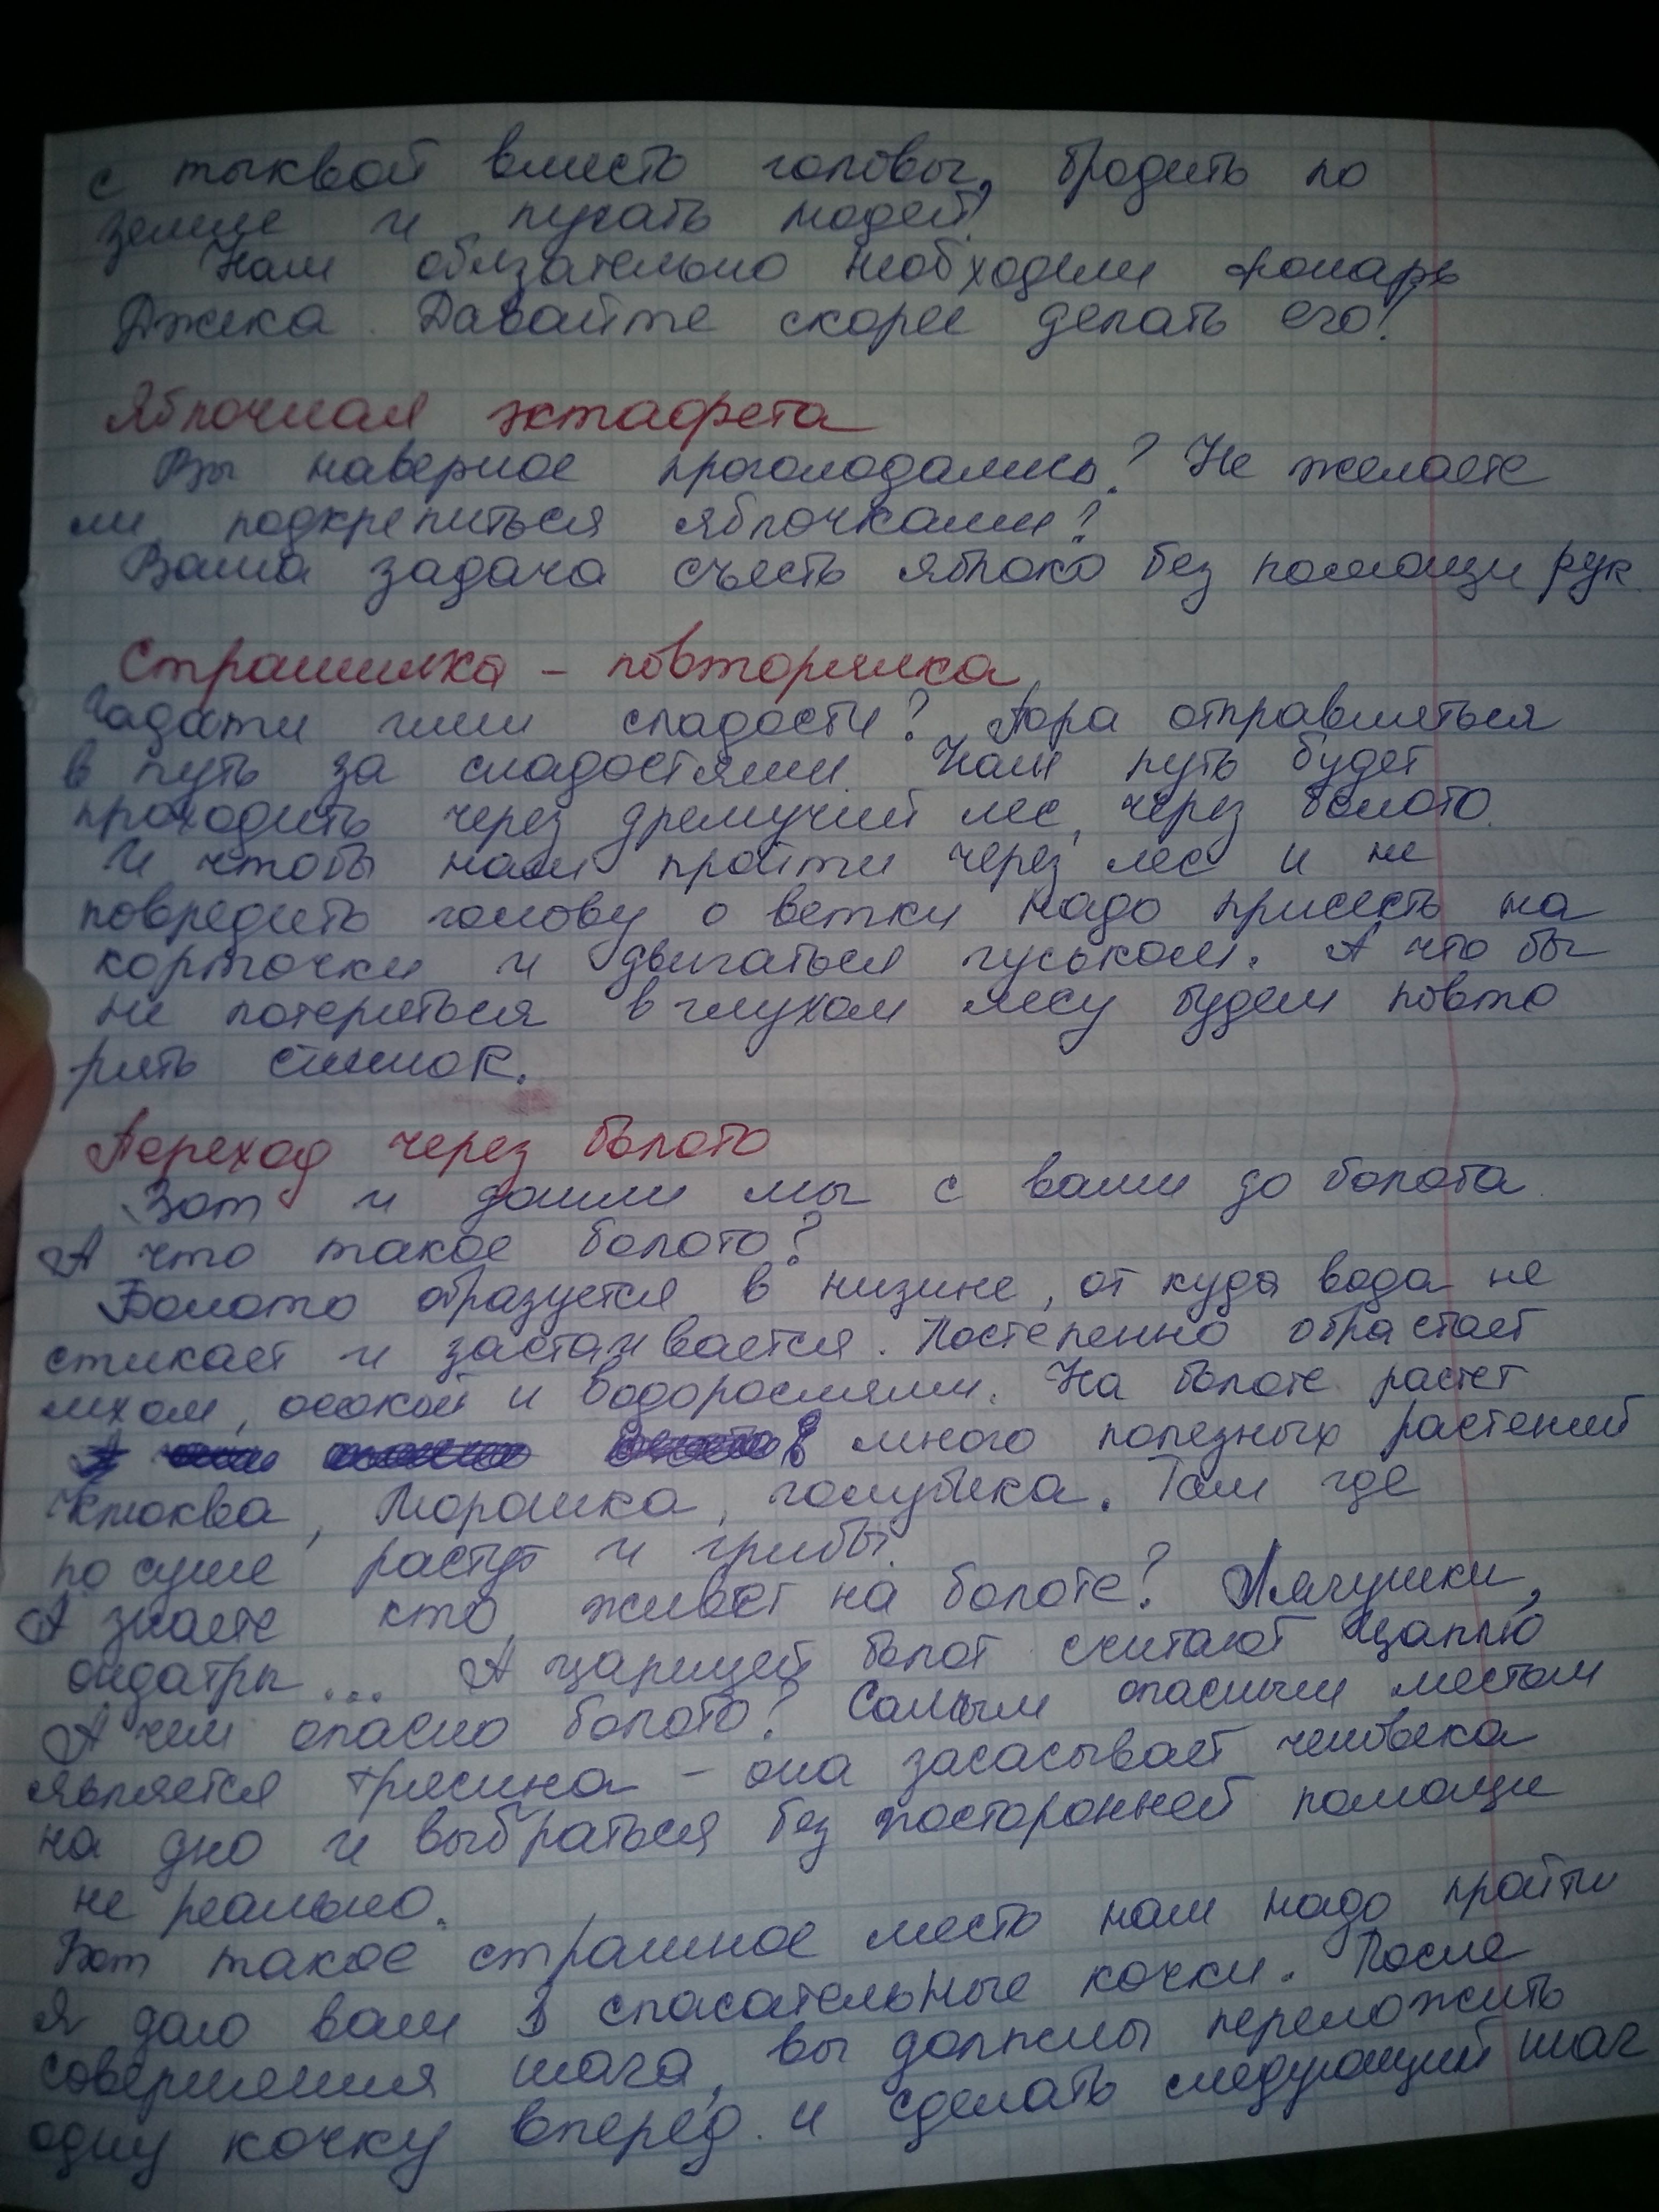 с тыквой вместо головы, бродить по
земле и пугать людей!
Нам обязательно необходим фонарь
Джека. Давайте скорее делать его!
Яблочная эстафета
Вы наверное проголодались? Не желаете
ли подкрепиться яблочками?
Ваша задача съесть яблоко без помощи рук
Страшилка - повторялка
Гадости или сладости? Пора отправляться
в путь за сладостями. Наш путь будет
проходить через дремучий лес, через болото.
И чтобы нам пройти через лес и не
повредить голову о ветки надо присесть на
корточки и двигаться гуськом. А что бы
не потеряться в глухом лесу будем повто
рять стишок.
Переход через болото
Вот и дошли мы с вами до болота.
А что такое болото?
Болото образуется в низине, от куда вода не
стикает и застаивается. Постепенно обрастает
мхом, осокой и водорослями. На болоте растет
много полезных растений
Клюква, Морошка, голубика. Там где
по суше растут и грибы.
А знаете кто живет на болоте? Лягушки,
ондатры... А царицей болот считают цаплю
А чем опасно болото? Самым опасным местом
является трясина - она засасывает человека
на дно и выбраться без посторонней помощи
не реально.
Вот такое страшное место нам надо пройти
Я даю вам 3 спасательные кочки. После
совершения шага, вы должны переложить
одну кочку вперед и сделать следующий шаг